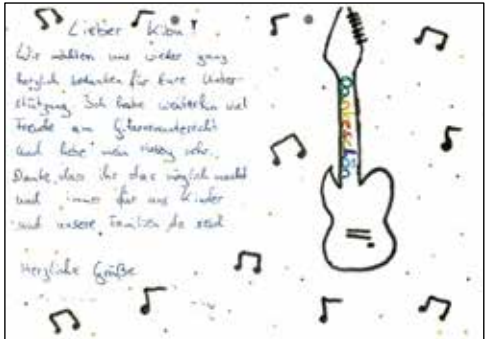 Lieber Kibu!
Wir möchten uns wieder ganz
herzlich bedanken für Eure Unter-
stützung. Ich habe weiterhin viel
Freude am Gitarrenunterricht
und liebe mein Hobby sehr.
Danke, dass ihr das möglich macht
und immer für uns Kinder
und unsere Familien da seid
Herzliche Grüße
Dankeschön